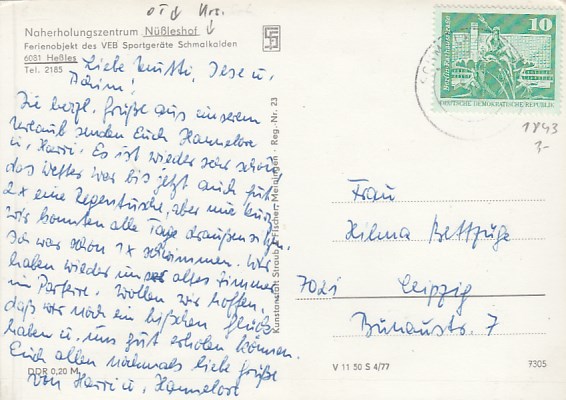 OT Hrs.
Naherholungszentrum Nüßleshof
Ferienobjekt des VEB Sportgeräte Schmalkalden
6081 Heßles
Tel. 2185
Liebe Mutti, Ilse u.
Achim!
Die herzl. Grüße aus unserem
Urlaub senden Euch Hannelore
u. Harri. Es ist wieder sehr schön
das Wetter war bis jetzt auch gut
2x eine Regenhusche, aber nur kurz
wir konnten alle Tage draußen sitzen.
Ich war schon 1x schwimmen. Wir
haben wieder unser altes Zimmer
im Parterre. Wollen wir hoffen,
daß wir noch ein bißchen Glück
haben u. uns gut erholen können.
Euch allen nochmals liebe Grüße
von Harri u. Hannelore
DDR 0,20 M
Kunstanstalt Straub & Fischer, Meiningen · Reg.-Nr. 23
10
Berlin, Rathausstraße
DEUTSCHE DEMOKRATISCHE REPUBLIK
1843
3-
Frau
Hilma Bettzüge
7021 Leipzig
Bunaustr. 7
V 11 50 S 4/77
7305